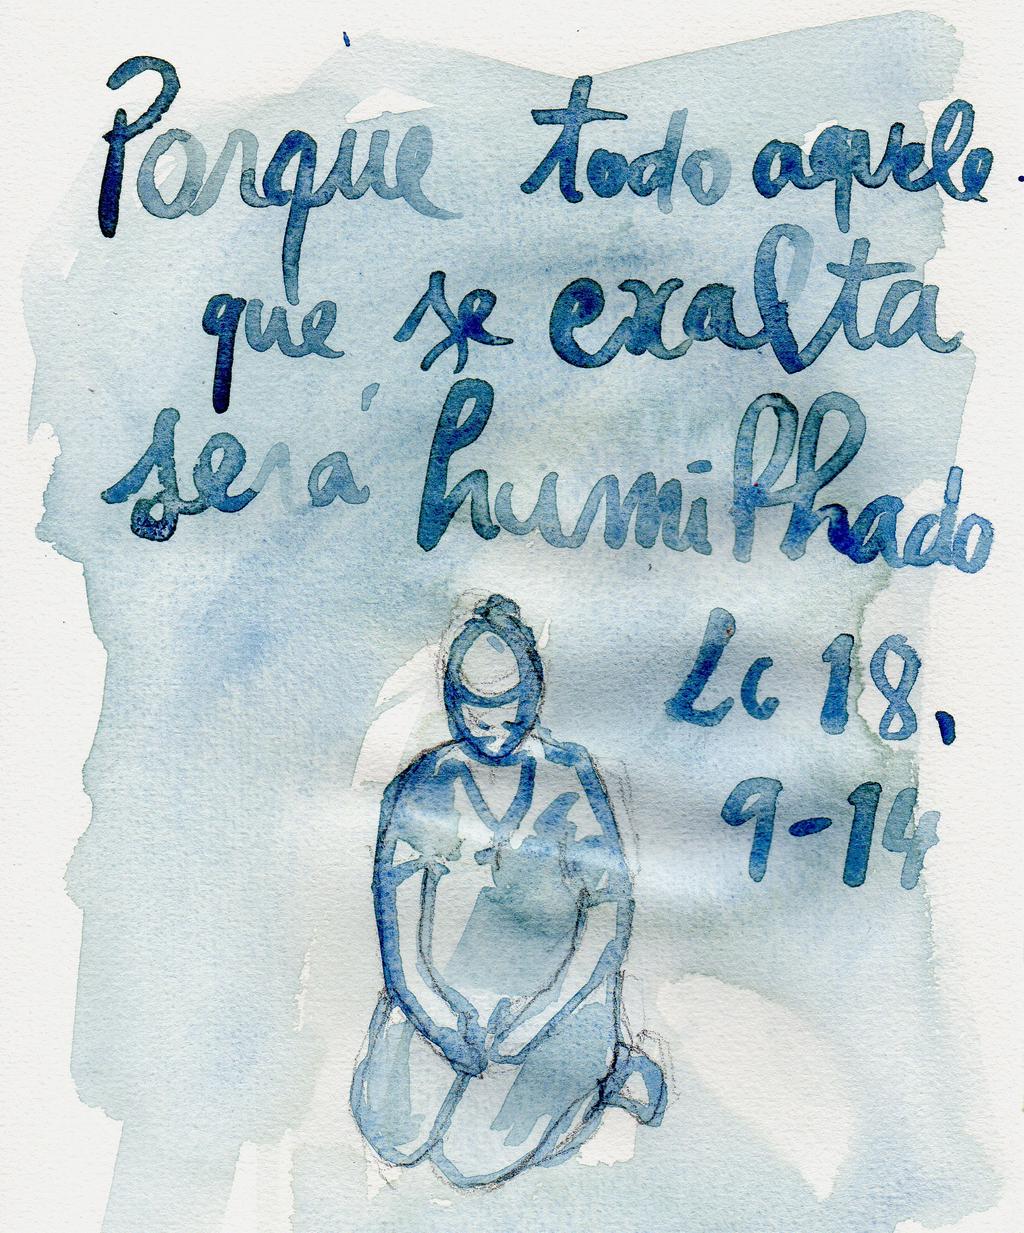 Porque todo aquele
que se exalta
será humilhado
Lc 18,
9-14